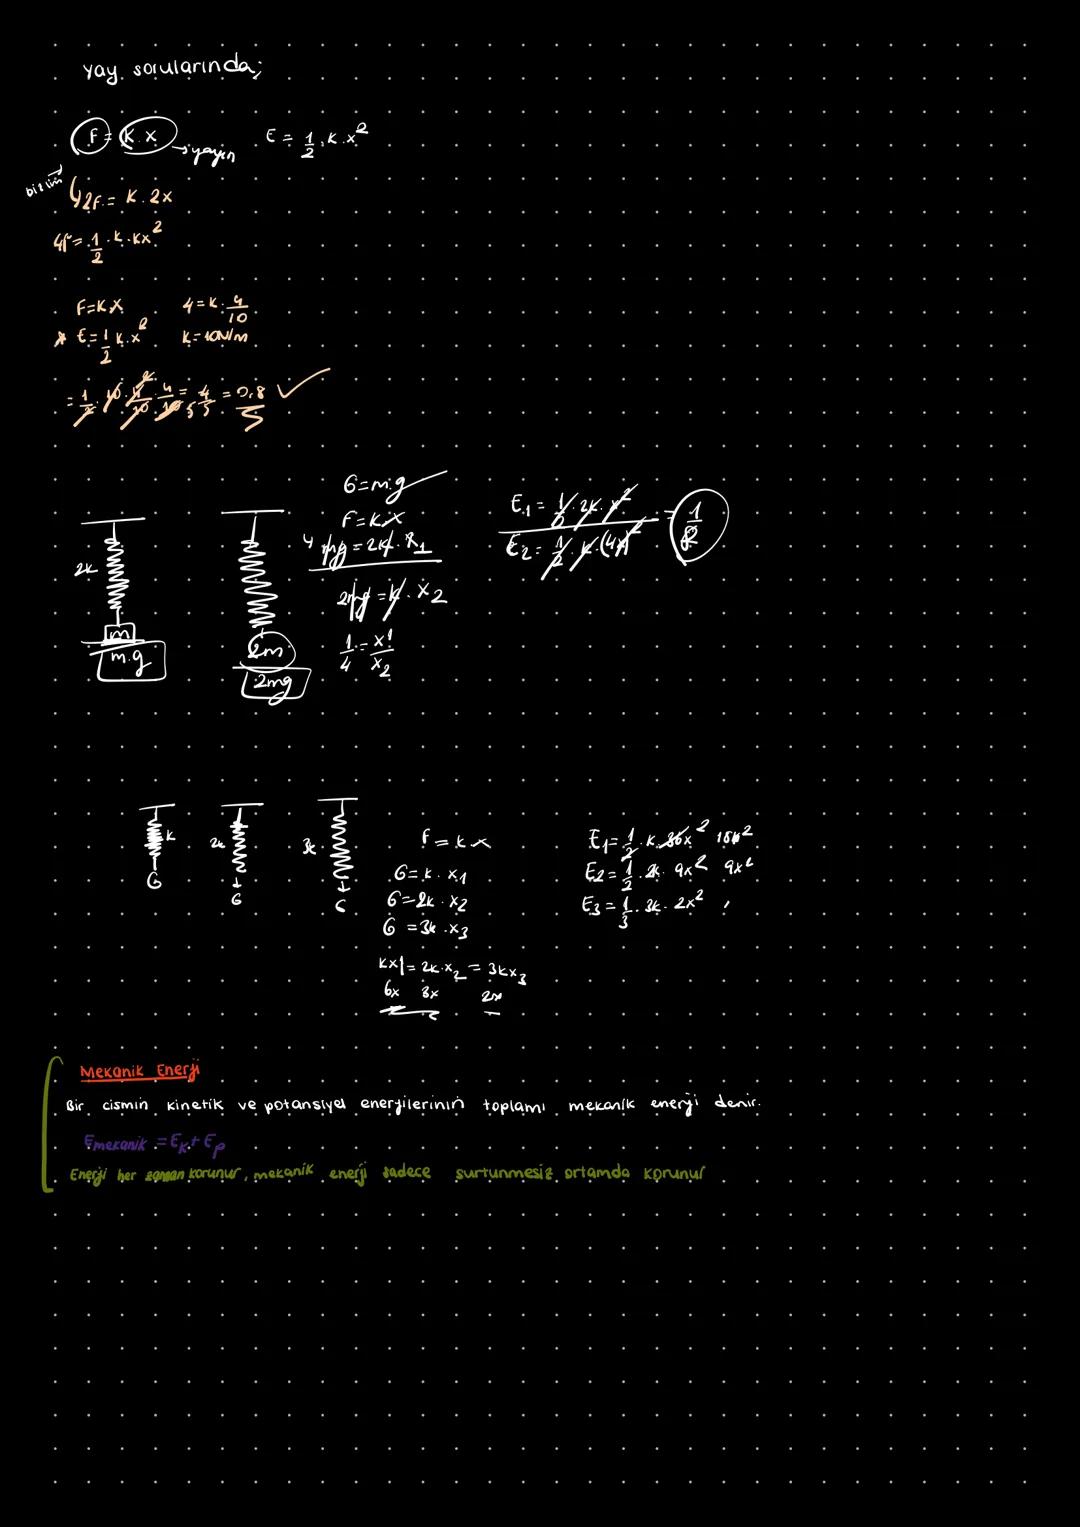 yay sorularında;
F = K.x → yayın E = 1/2 . K . x²
bizim
2F = K . 2x
4F = 1/2 . K . Kx²
F = K.x 4 = K . 4/10
* E = 1/2 K.x² K = 10N/m
= 1/2 . 10 . 4/10 . 4/10 = 4/5 = 0,8 ✓
G = m.g
F = K.x
mg = 2K . x1
2mg = K . x2
1/4 = x1/x2
E1 = 1/2 . 2K . x²
E2 = 1/2 . K . (4x)²
= 1/8
2K
m
m.g
2m
2mg
K 2K 3K
G G G
F = K x
G = K . x1
G = 2K . x2
G = 3K . x3
Kx1 = 2K.x2 = 3Kx3
6x 3x 2x
E1 = 1/2 . K . 36x² 18x²
E2 = 1/2 . 2K . 9x² 9x²
E3 = 1/3 . 3K . 2x²
Mekanik Enerji
Bir cismin kinetik ve potansiyel enerjilerinin toplamı mekanik enerji denir.
Emekanik = EK + Ep
Enerji her zaman korunur, mekanik enerji sadece surtunmesiz ortamda korunur